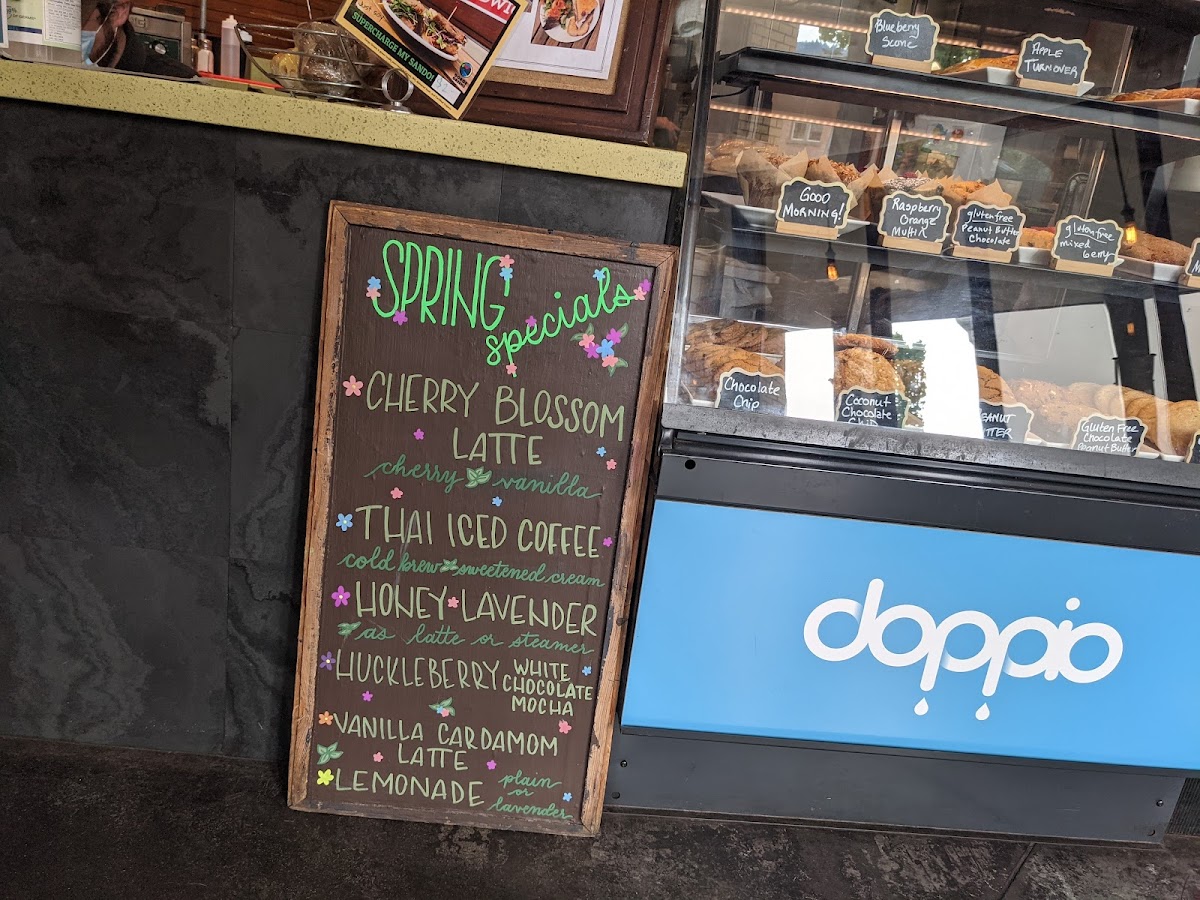 SUPERCHARGE MY SANDO!
Blueberry
Scone
APPLE
TURNOVER
GOOD
MORNING!
Raspberry
Orange
Muffix
glutenfree
Peanut Butter
Chocolate
glutenfree
mixed
berry
Chocolate
Chip
Coconut
Chocolate
Chip
Gluten Free
Chocolate
Peanut Butter
SPRING
specials
CHERRY BLOSSOM
LATTE
cherry vanilla
THAI ICED COFFEE
cold brew sweetened cream
HONEY LAVENDER
as latte or steamer
HUCKLEBERRY WHITE
CHOCOLATE
MOCHA
VANILLA CARDAMOM
LATTE
LEMONADE plain
or
lavender
doppio